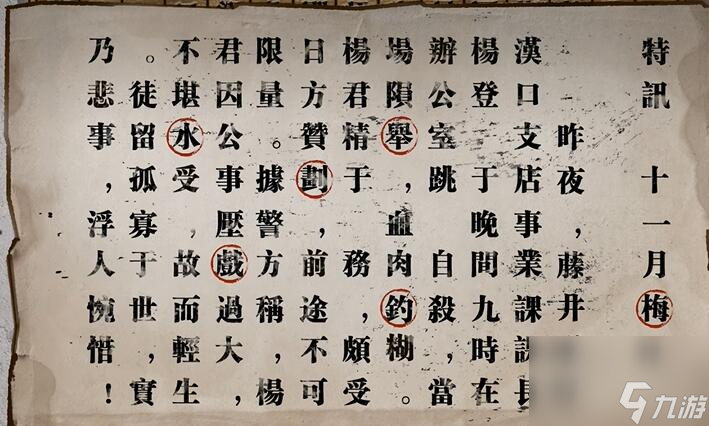 特訊 十一月梅
昨夜，藤井
漢口支店事業課課長
楊登 于晚間九時在
辦公室跳 自殺，當
場隕舉，血肉釣糊。
楊君精于 務，頗受
日方贊劃 前途，不可
限量。據警，方稱，楊
君因公事壓戲過大，
不堪水受，故而輕生
。徒留孤寡，于世，實
乃悲事，浮人惋惜！
九游